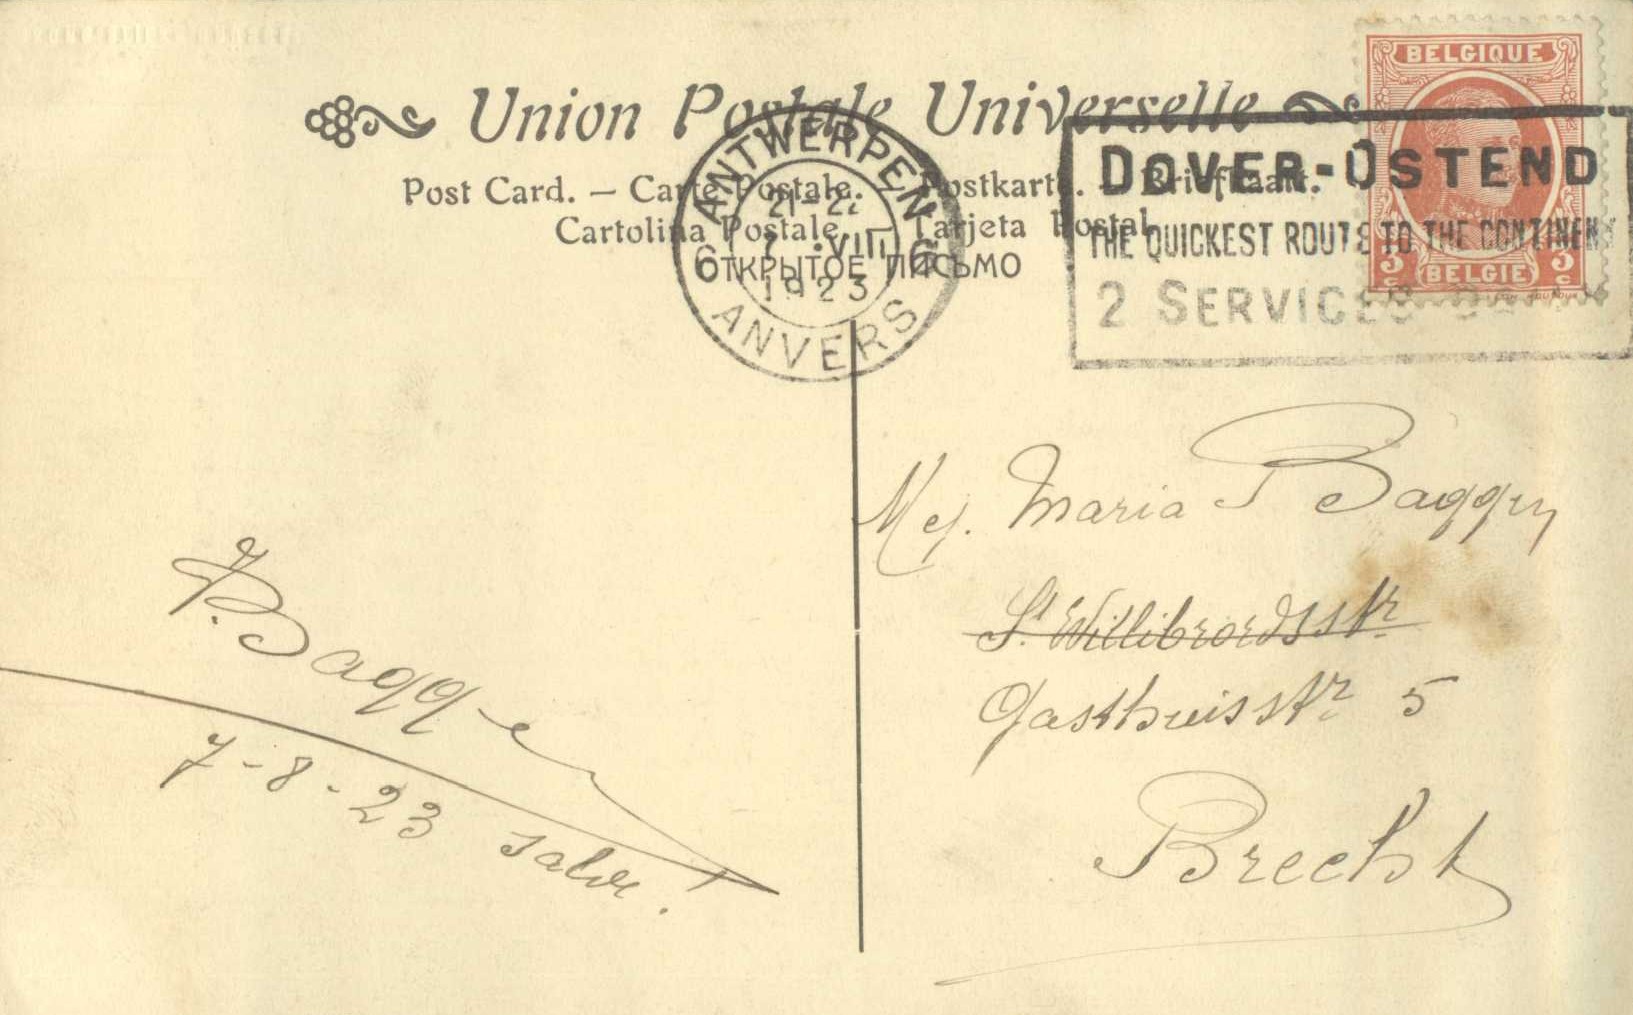 Union Postale Universelle
Post Card. — Carte Postale. — Postkarte. — Briefkaart.
Cartolina Postale. Tarjeta Postal
ОТКРЫТОЕ ПИСЬМО
ANTWERPEN
21-2
7 VIII
1923
6 6
ANVERS
BELGIQUE
DOVER-OSTEND
THE QUICKEST ROUTE TO THE CONTINENT
2 SERVICES
3c BELGIË 3c
Mej. Maria
St Willibrordsstr
Gasthuisstr 5
Brecht
7-8-23 salve.